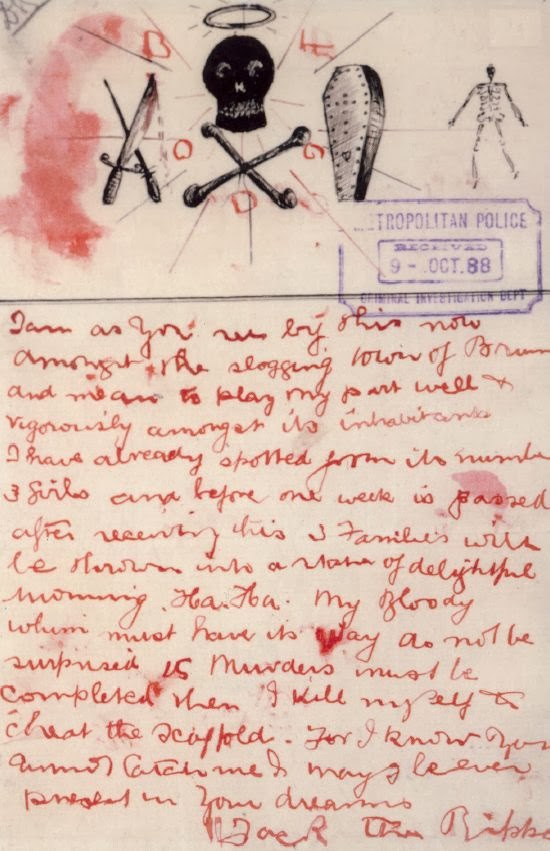 B
F
O
G
D
METROPOLITAN POLICE
RECEIVED
9 - OCT. 88
CRIMINAL INVESTIGATION DEPT
I am as you see by this now
amongst the slogging town of Brum
and mean to play my part well &
vigorously amongst its inhabitants
I have already spotted from its number
3 Girls and before one week is passed
after receiving this 3 Families will
be thrown into a state of delightful
mourning. Ha. Ha. My Bloody
whim must have its way do not be
surprised 15 Murders must be
completed then I kill myself &
cheat the scaffold. For I know you
cannot catch me & may I be ever
present in your dreams
Jack the Ripper